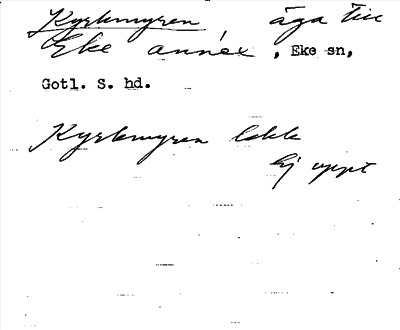 Kyrkmyren, äga till
Eke annex, Eke sn,
Gotl. S. hd.
Kyrkmyren Ekke
Ej uppt